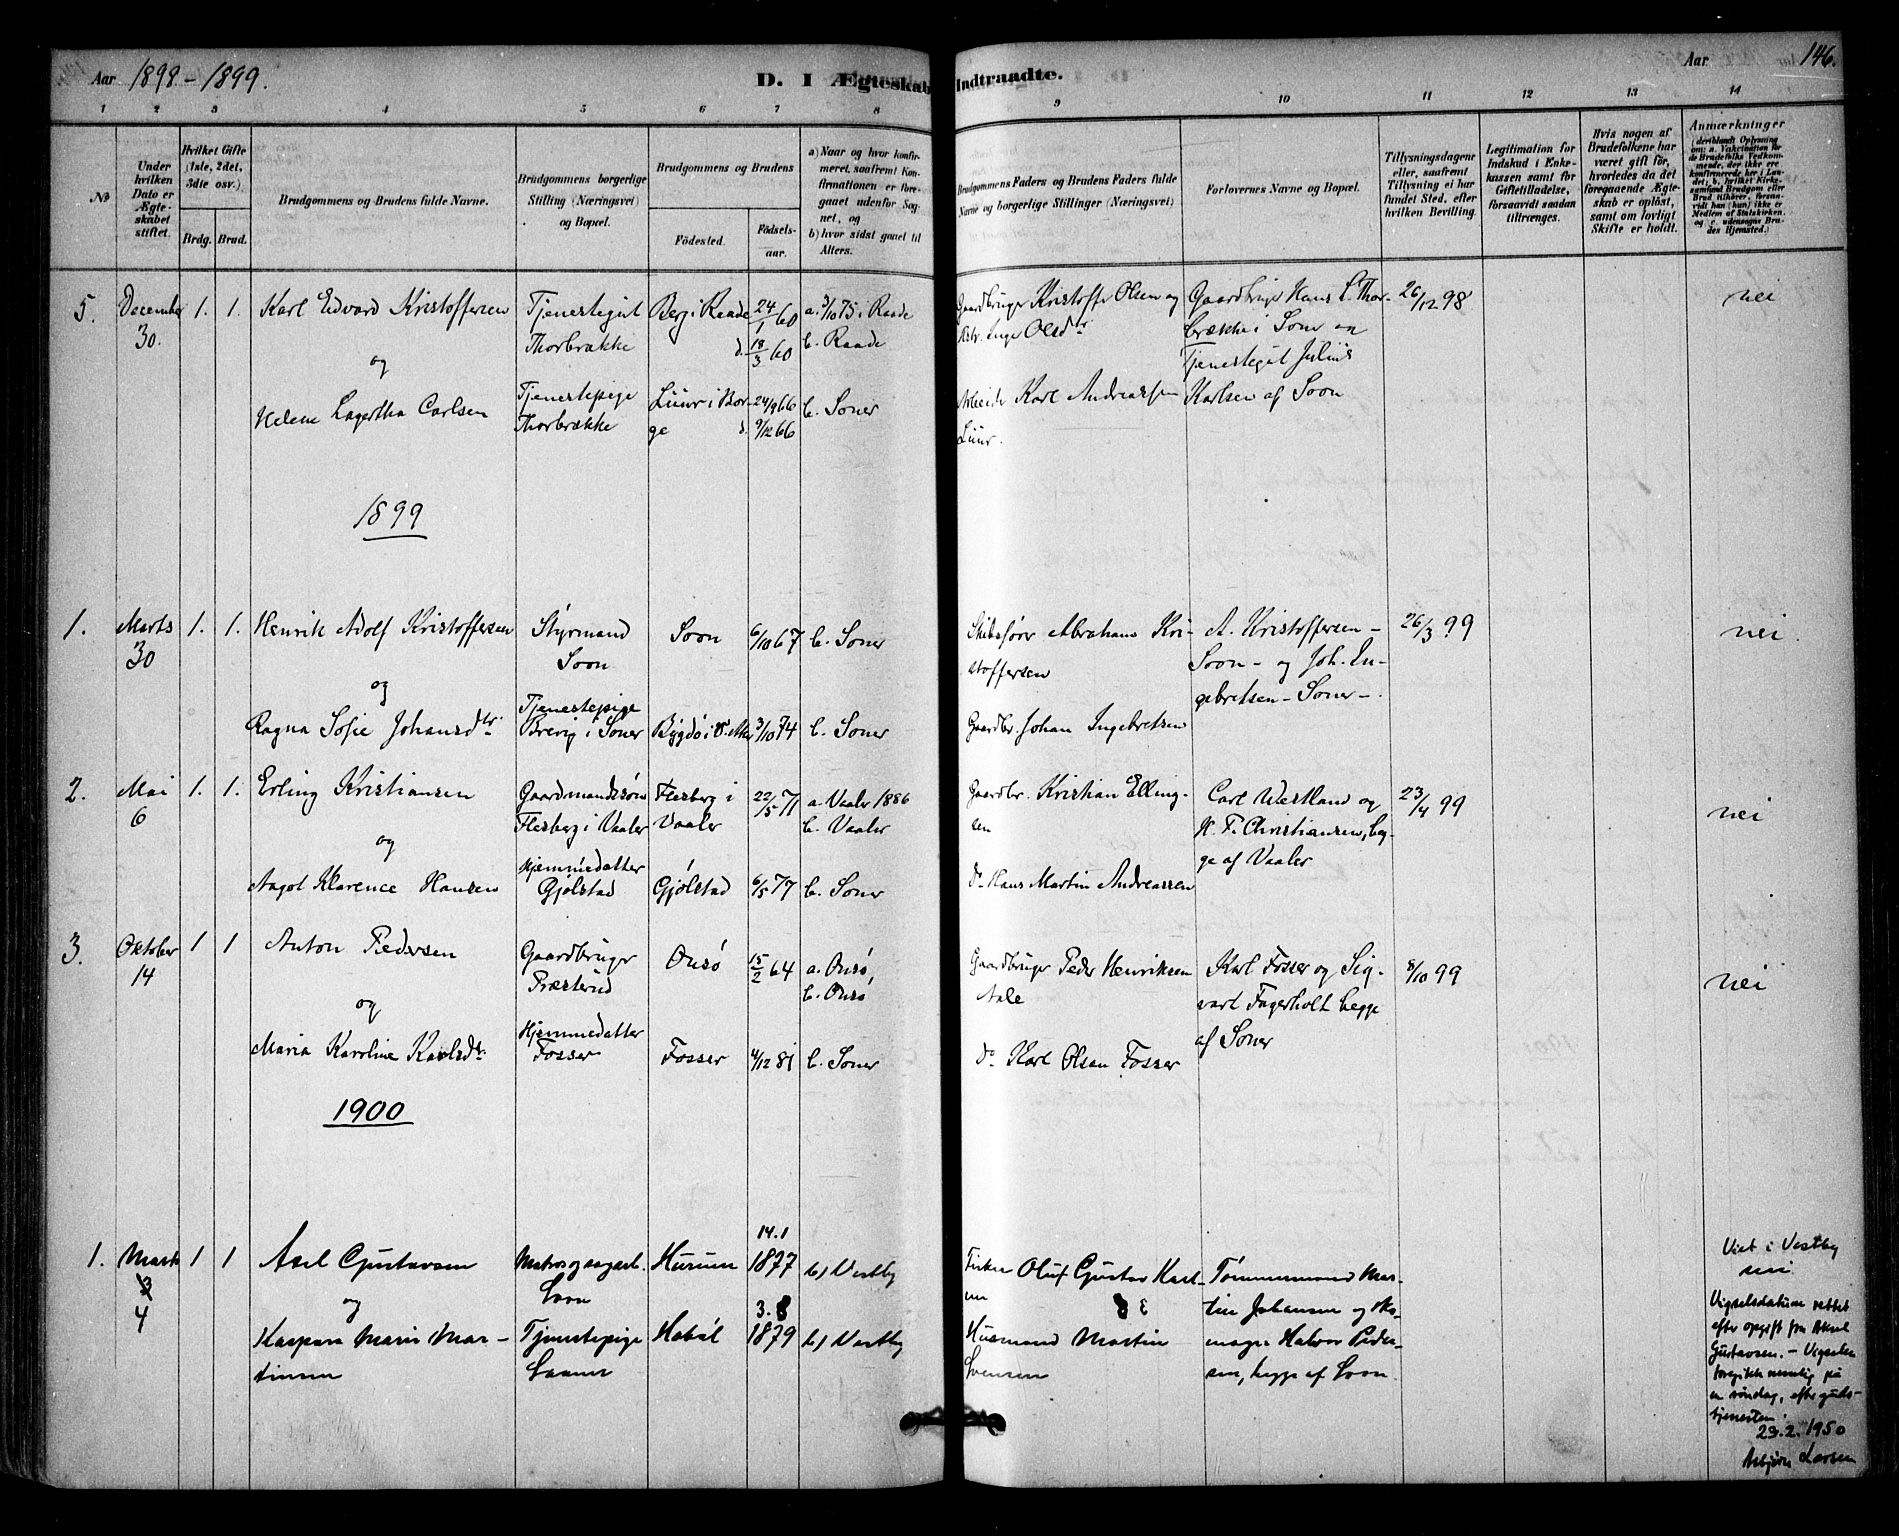 Aar 1898-1899.
D. I Ægteskab Indtraadte.
Aar 146.
1 2 3 4 5 6 7 8 9 10 11 12 13 14
№
Under hvilken Dato er Ægteskabet stiftet.
Hvilket Gifte (1ste, 2det, 3die osv.)
Brdg. Brud.
Brudgommens og Brudens fulde Navne.
Brudgommens borgerlige Stilling (Næringsvei) og Bopæl.
Brudgommens og Brudens
Födested. Födselsaar.
a) Naar og hvor konfirmeret, saafremt Konfirmationen er foregaaet udenfor Sognet, og
b) hvor sidst gaaet til Alters.
Brudgommens Faders og Brudens Faders fulde Navne og borgerlige Stillinger (Næringsvei)
Forlovernes Navne og Bopæl.
Tillysningsdagene eller, saafremt Tillysning ei har fundet Sted, efter hvilken Bevilling.
Legitimation for Indskud i Enkekassen samt for Giftetilladelse, forsaavidt saadan tiltrænges.
Hvis nogen af Brudefolkene har været gift för, hvorledes da det foregaaende Ægteskab er oplöst, samt om lovligt Skifte er holdt.
Anmærkninger
5. December 30. 1. 1.
Karl Edvard Kristoffersen
og
Helene Lagertha Carlsen
Tjenestegut
Thorbrække
Tjenestepige
Thorbrække
Berg i Raade
24/1 60
d. 18/3 60
Luur i Borge
24/9 66
d. 9/12 66
a. 3/10 75 i Raade
b. Raade
b. Soner
Gaardbruger Kristoffer Olsen og
Hstr. Inge Olsdtr
Arbeider Karl Andreassen
Luur.
Gaardbruger Hans L. Thorbrække i Soner og
Tjenestegut Julius
Karlsen af Soon
26/12 98
nei
1899
1. Marts 30 1. 1.
Henrik Adolf Kristoffersen
og
Ragna Sofie Johansdtr.
Styrmand
Soon
Tjenestepige
Brevig i Soner
Soon
Bygdö i V. Aker
6/10 67
3/10 74
b. Soner
b. Soner
Skibsförer Abraham Kristoffersen
Gaardbr. Johan Ingebretsen
A. Kristoffersen -
Soon - og Joh. Ingebretsen - Soner -.
26/3 99
nei.
2. Mai 6 1. 1.
Erling Kristiansen
og
Aagot Klarence Hansen
Gaardmandssøn
Flesberg i Vaaler
Hjemmedatter
Gjølstad
Flesberg i
Vaaler
Gjølstad
22/5 71
6/5 77
a. Vaaler 1886
b. Vaaler
b. Soner
Gaardbr. Kristian Ellingsen
Do Hans Martin Andreassen
Carl Westlund og
H. F. Christiansen, begge af Vaaler
23/4 99
nei
3. Oktober 14 1 1
Anton Pedersen
og
Maria Karoline Karlsdtr.
Gaardbruger
Præsterud
Hjemmedatter
Fosser
Onsø
Fosser
15/2 64
4/12 81
a. Onsø,
b. Onsø
b. Soner
Gaardbruger Peder Henriksen
Aale
Do Karl Olsen Fosser
Karl Fosser og Sigvart Fagerholt begge
af Soner
8/10 99
nei
1900
1. Marts 3 4 1 1
Axel Gustavsen
og
Kaspara Marie Martinsen
Matros og sagarb.
Soon
Tjenestepige
Saaner
Hurum
Hobøl
14.1
1877
3.8
1879
b) Vestby
b) Vestby
Fisker Oluf Gustav Karlsen
Husmand Martin
Svensen
Tømmermand Martin Johansen og skomager Halvor Pedersen, begge af Soon.
Viet i Vestby
nei
Vigselsdatum rettet
efter opgift fra Aksel
Gustavsen. - Vigselen
foregikk nemlig på
en søndag, efter gudstjenesten.
23.2.1950
Asbjørn Larsen